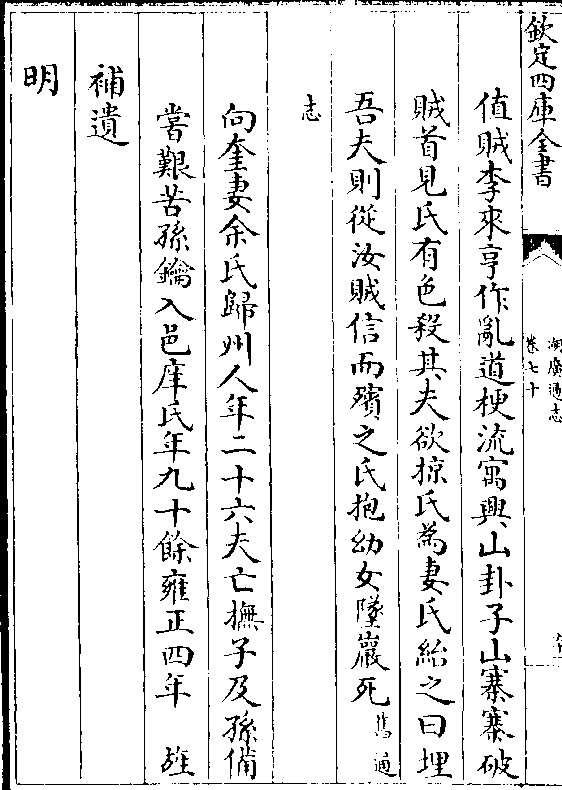 欽定四庫全書
湖廣通志
卷七十
值賊李來亨作亂道梗流寓興山卦子山寨寨破
賊首見氏有色殺其夫欲掠氏為妻氏紿之曰埋
吾夫則從汝賊信而殯之氏抱幼女墜巖死舊通
志
向奎妻余氏歸州人年二十六夫亡撫子及孫備
嘗艱苦孫鑰入邑庠氏年九十餘雍正四年 旌
補遺
明